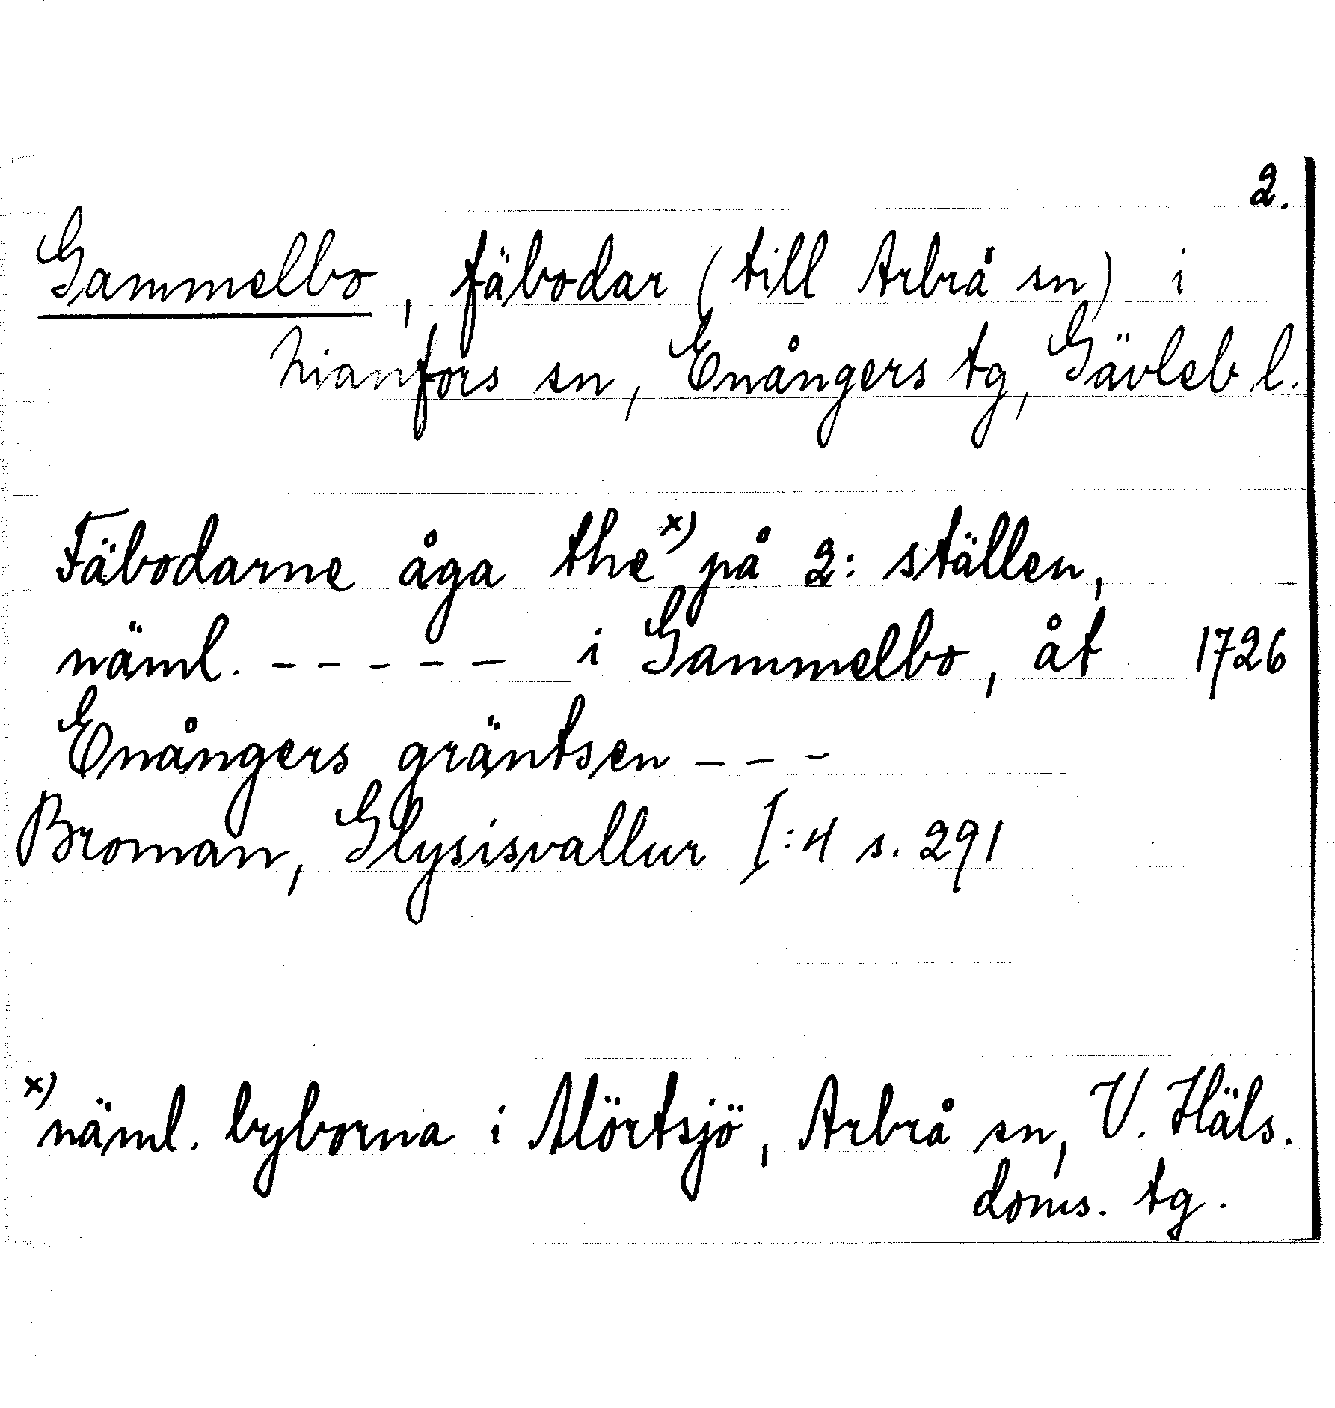 2.
Gammelbo, fäbodar (till Arbrå sn) i
Nianfors sn, Enångers tg, Gävleb l.
Fäbodarne åga the x) på 2: ställen,
näml. ----- i Gammelbo, åt 1726
Enångers gräntsen ---
Broman, Glysisvallur I:4 s. 291
x) näml. byborna i Mörtsjö, Arbrå sn, V. Häls.
doms. tg.